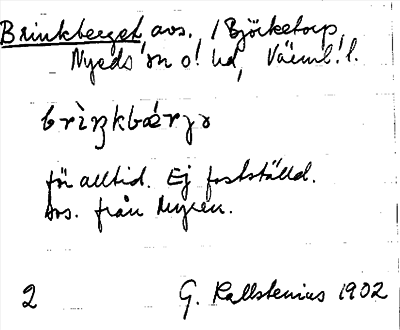 Brinkberget avs. i Björketorp,
Nyeds sn o. hd, Värml. l.
brìŋkbærjə
för alltid. Ej fastställd.
avs. från Nyren.
2 G. Kallstenius 1902